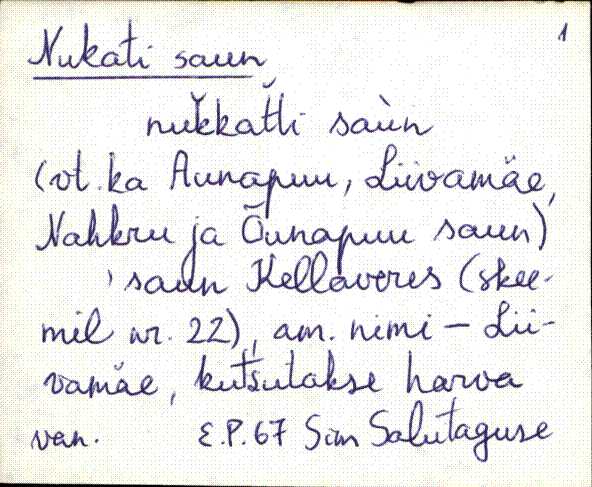 1
Nukati saun
nukkatti saùn
(vt. ka Aunapuu, Liivamäe,
Nahkru ja Õunapuu saun)
saun Kellaveres (skee-
mil nr. 22), am. nimi – Lii-
vamäe, kutsutakse harva
van. E.P. 67 Sim Salutaguse